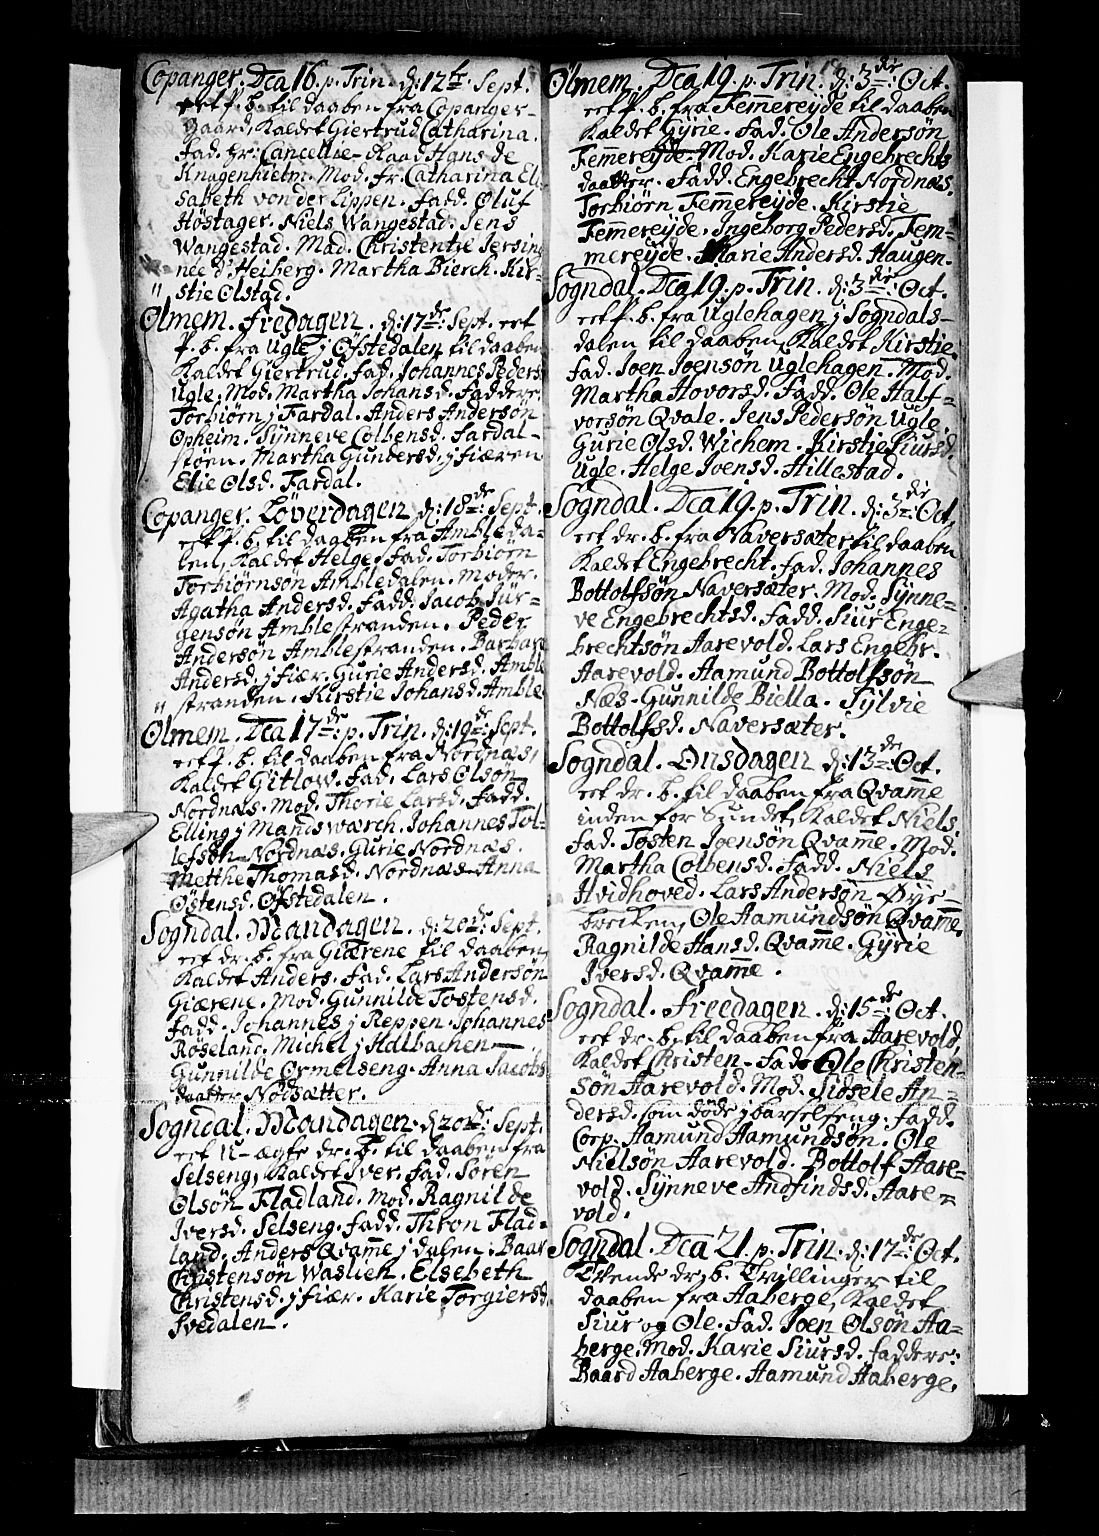 Copanger. Dca 16. p. Trin. d: 12te: Sept.
eet p. b. til daaben fra Copanger-
Gaard, Kaldet Giertrud Catharina.
Fad. Hr: Cancellie-Raad Hans de
Knagenhielm. Mod. Fr. Catharina Eli-
sabeth von der Lippen. Fadd. Oluf
Høstager. Niels Wangestad. Jens
Wangestad. Mad. Christentie Jersing
née d'Heiberg. Martha Bierch. Kir-
stie Olstad.
Olmem. Fredagen. d: 17de: Sept. eet
p. b. fra Ugle j Ofstedalen til daaben
Kaldet Giertrud. Fad. Johannes Peders.
Ugle, Mod. Martha Johansd. Faddere.
Torbiørn j Fardal. Anders Andersøn
Opheim. Synneve Colbensd. Fardal-
støen. Martha Gundersd. j Fiæren
Elie Olsd. Fardal.
Copanger. Løverdagen d: 18de: Sept.
eet p. b. til daaben fra Ambleda-
len, Kaldet Helge, Fad. Torbiørn
Torbiørnsøn Ambledalen. Moder.
Agatha Andersd. Fadd. Jacob Jür-
gensøn Amblestranden. Peder
Andersøn Amblestranden. Barbara
Andersd. j Fiær. Gurie Andersd. Amble
stranden. Kirstie Johansd. Amble
Olmem. Dca 17de: p. Trin. d: 19de: Sept.
eet p. b. til daaben fra Nordnæs,
Kaldet Gitlow. Fad. Lars Olsøn
Nordnæs. Mod. Thorie Larsd. Fadd.
Elling j Mandswærch. Johannes Tol-
lefsøn Nordnæs. Gurie Nordnæs.
Metthe Thomasd. Nordnæs Anna
Østensd. Ofstedalen.
Sogndal. Mandagen. d: 20de: Sept.
eet dr. b. fra Giærene til daaben,
Kaldet Anders. Fad. Lars Andersøn
Giærene. Mod. Gunnilde Tostensd.
Fadd. Johannes j Reppen. Johannes
Røseland. Michel j Halbachen
Gunnilde Ormelseng. Anna Jacobs
daatter Nodsætter.
Sogndal. Mandagen. d: 20de: Sept.
eet U-ægte dr. b. til daaben fra
Selseng, Kaldet Iver. Fad. Søren
Olsøn Fladland. Mod. Ragnilde
Iversd. Selseng. Fadd. Thron Flad-
land. Anders Qvam̅e j dalen. Baar
Christensøn Waslien. Elsebeth
Christensd. j Fiær. Karie Torgiersd.
Svedalen.
Ølmem. Dca 19. p. Trin. d: 3die: Oct.
eet p. b. fra Fem̅ereyde til daaben
Kaldet Gyrie. Fad. Ole Andersøn
Fem̅ereyde. Mod. Karie Engebrechts
daatter. Fadd. Engebrecht Nordnæs.
Torbiørn Fem̅ereyde. Kirstie
Fem̅ereyde. Ingeborg Pedersd. Fem-
mereyde. Marie Andersd. Haugen.
Sogndal. Dca 19. p. Trin. d: 3die: Oct.
eet p. b. fra Uglehagen j Sogndals-
dalen til daaben, Kaldet Kirstie.
Fad. Joen Joensøn Uglehagen. Mod.
Martha Hovorsd. Fadd. Ole Half-
vorsøn Qvale. Jens Pedersøn Ugle.
Gurie Olsd. Wichem. Kirstie Siursd.
Ugle. Helge Joensd. Hillestad.
Sogndal. Dca 19. p. Trin. d: 3die: Oct.
eet dr. b. fra Naversæter til daaben
Kaldet Engebrecht. Fad. Johannes
Bottolfsøn Naversæter. Mod. Synne-
ve Engebrechtsd. Fadd. Siur Enge-
brechtsøn Aarevold. Lars Engebr.
Aarevold. Aamund Bottolfsøn
Næs. Gunnilde Biella. Sylvie
Bottolfsd. Naversæter.
Sogndal. Onsdagen d: 13de: Oct.
eet dr. b. til daaben fra Qvam̅e
inden for Sundet, Kaldet Niels.
Fad. Tosten Joensøn Qvam̅e. Mod.
Martha Colbensd. Fadd. Niels
Hvidhoved. Lars Andersøn Øyre-
brecken, Ole Aamundsøn Qvam̅e.
Ragnilde Hansd. Qvam̅e. Gyrie
Iversd. Qvam̅e.
Sogndal. Freedagen. d: 15de: Oct.
eet dr. b. til daaben fra Aarevold,
Kaldet Christen. Fad. Ole Christen-
søn Aarevold. Mod. Sidsele An-
dersd. som døde j barselseng. Fadd.
Corp. Aamund Aamundsøn. Ole
Nielsøn Aarevold. Bottolf Aare-
vold. Synneve Andfindsd. Aare-
vold.
Sogndal. Dca 21. p. Trin. d: 17de: Oct.
Tvende dr. b. Tvillinger til
daaben fra Aaberge, Kaldet
Siur og Ole. Fad. Joen Olsøn Aa-
berge, Mod. Karie Siursd. Faddere:
Baard Aaberge. Aamund Aaberge.